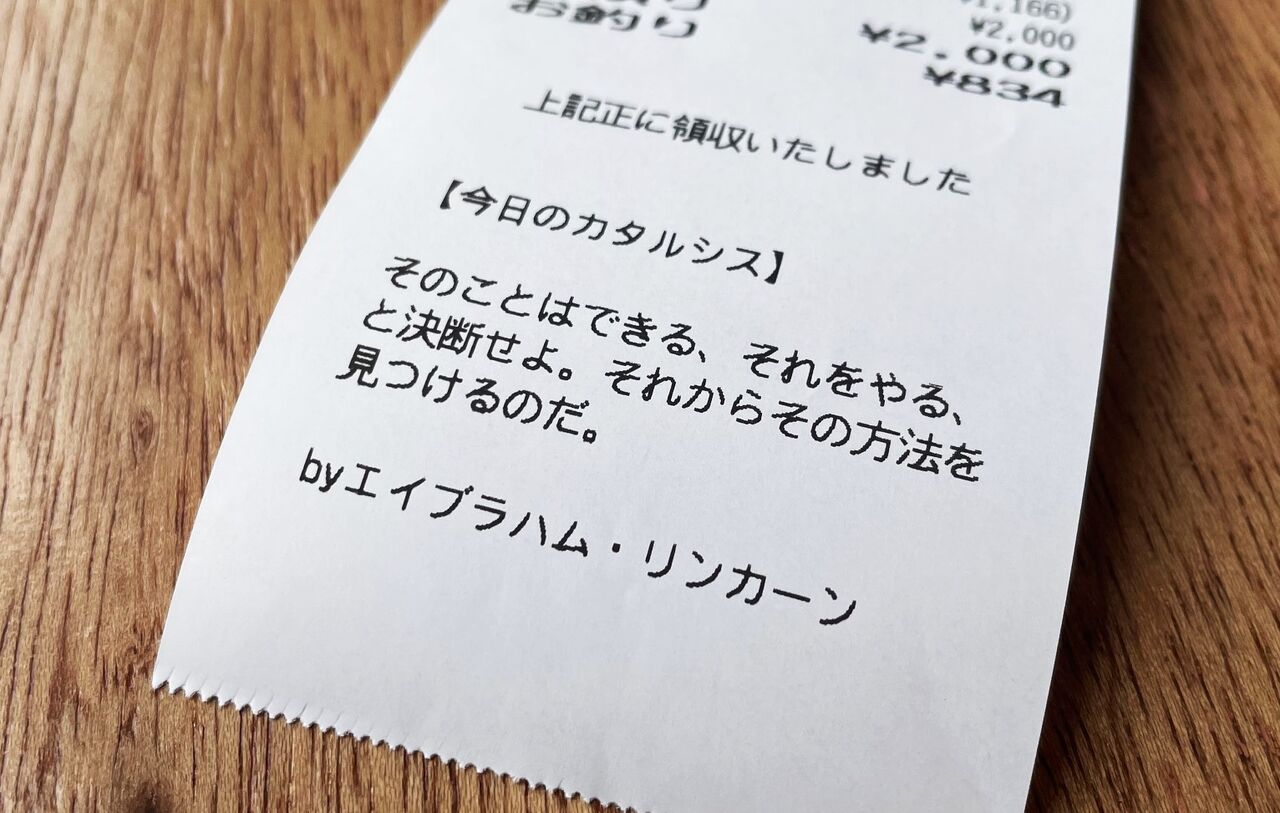 1,166)
¥2,000
¥2,000
お釣り ¥834
上記正に領収いたしました
【今日のカタルシス】
そのことはできる、それをやる、
と決断せよ。それからその方法を
見つけるのだ。
byエイブラハム・リンカーン